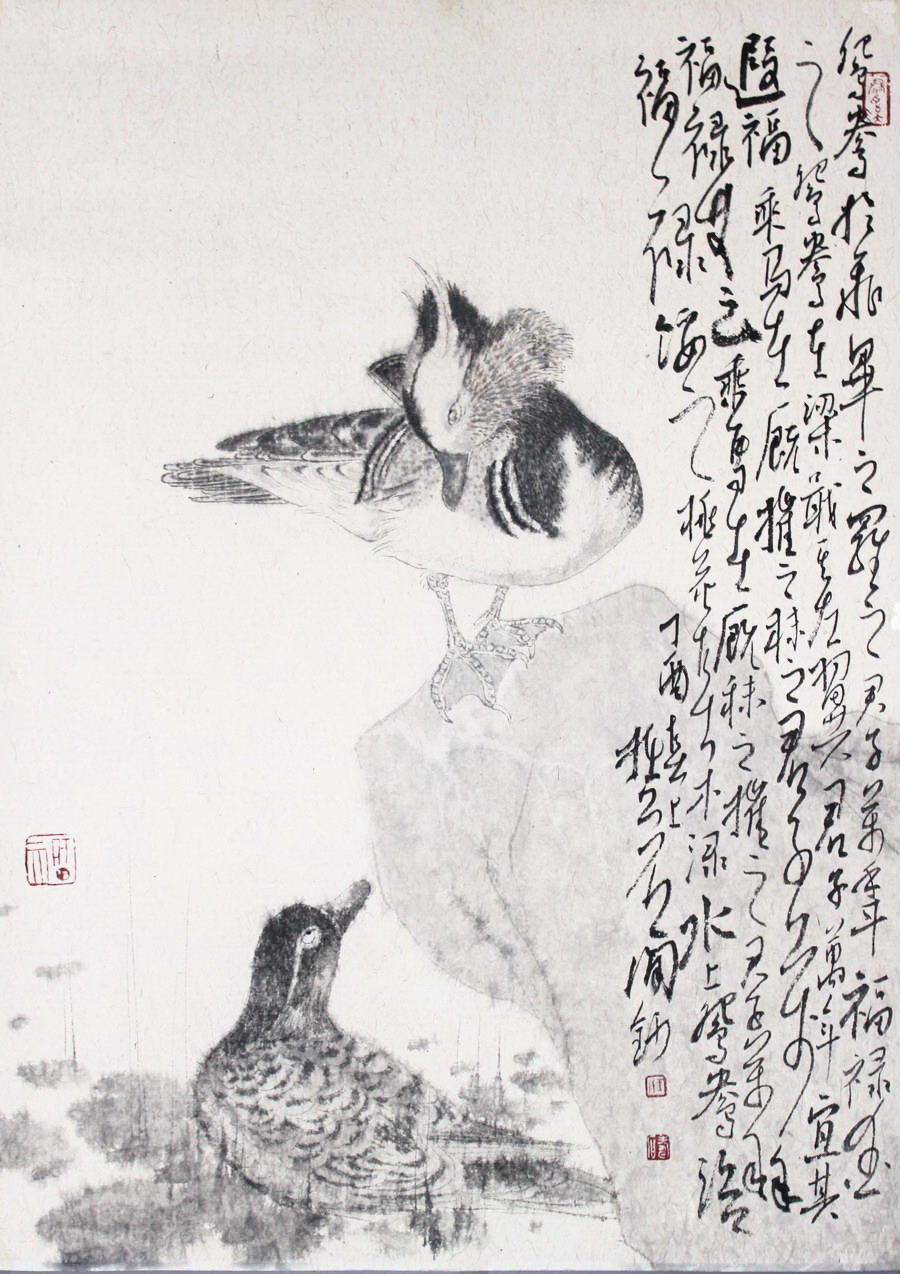 鴛鴦於飛畢之羅之君子萬年福祿宜
之鴛鴦在梁戢其左翼君子萬年宜其
遐福乘馬在厩摧之秣之君子萬年
福祿艾之乘馬在厩秣之摧之君子萬年
福祿綏之桃花春水渌水上鴛鴦浴
丁酉春上
閒鈔